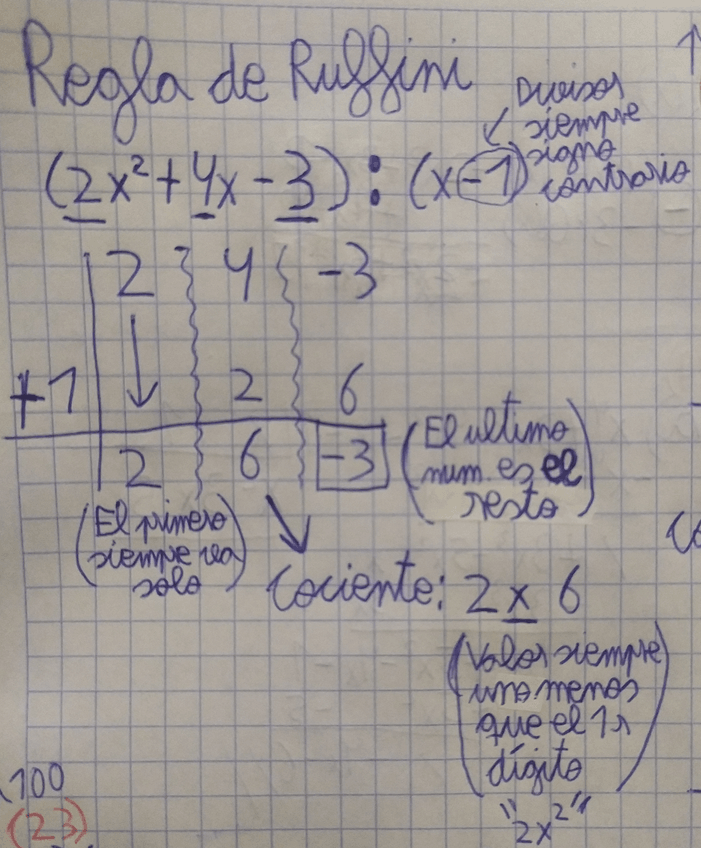 Regla de Ruffini
Divisor
siempre
signo
contrario
(2x²+4x-3):(x-1)
2 4 -3
+1 2 6
2 6 -3
(El ultimo
num. es el
resto)
(El primero
siempre va
solo)
Cociente: 2x 6
(Valor siempre
uno menos
que el 1r
dígito
"2x²"
100
(23)